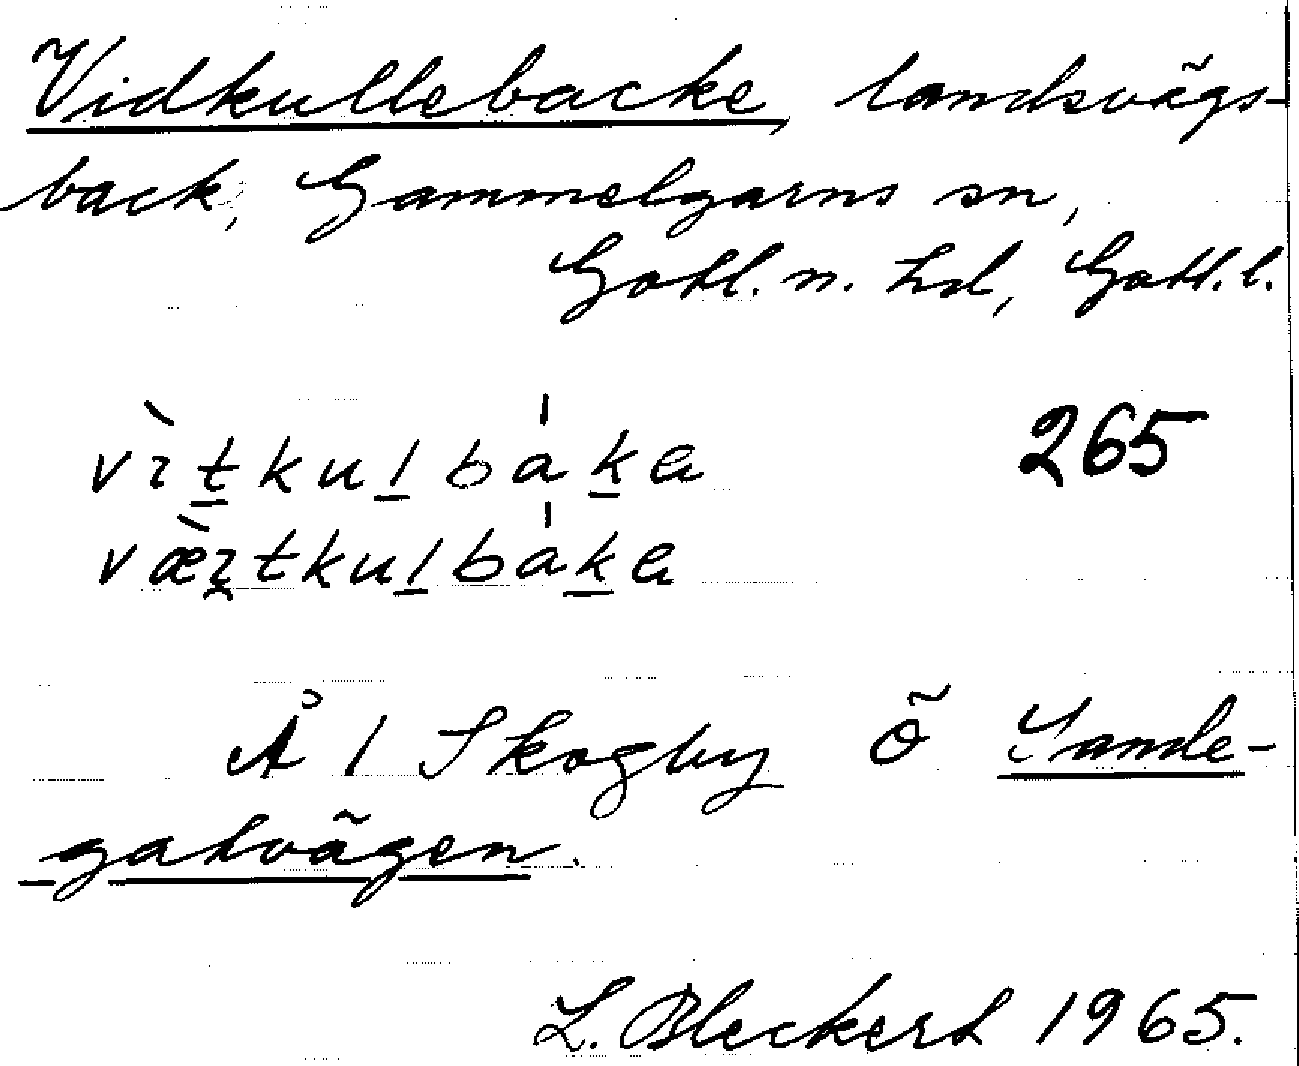 Vidkullebacke, landsvägs-
back, Gammelgarns sn,
Gotl. n. hd, Gotl. l.
vìt̲kul̲bák̲a 265
væ̀ɪ̯tkul̲bák̲a
Å 1 Skogby Ö Sande-
gatvägen.
L. Bleckert 1965.